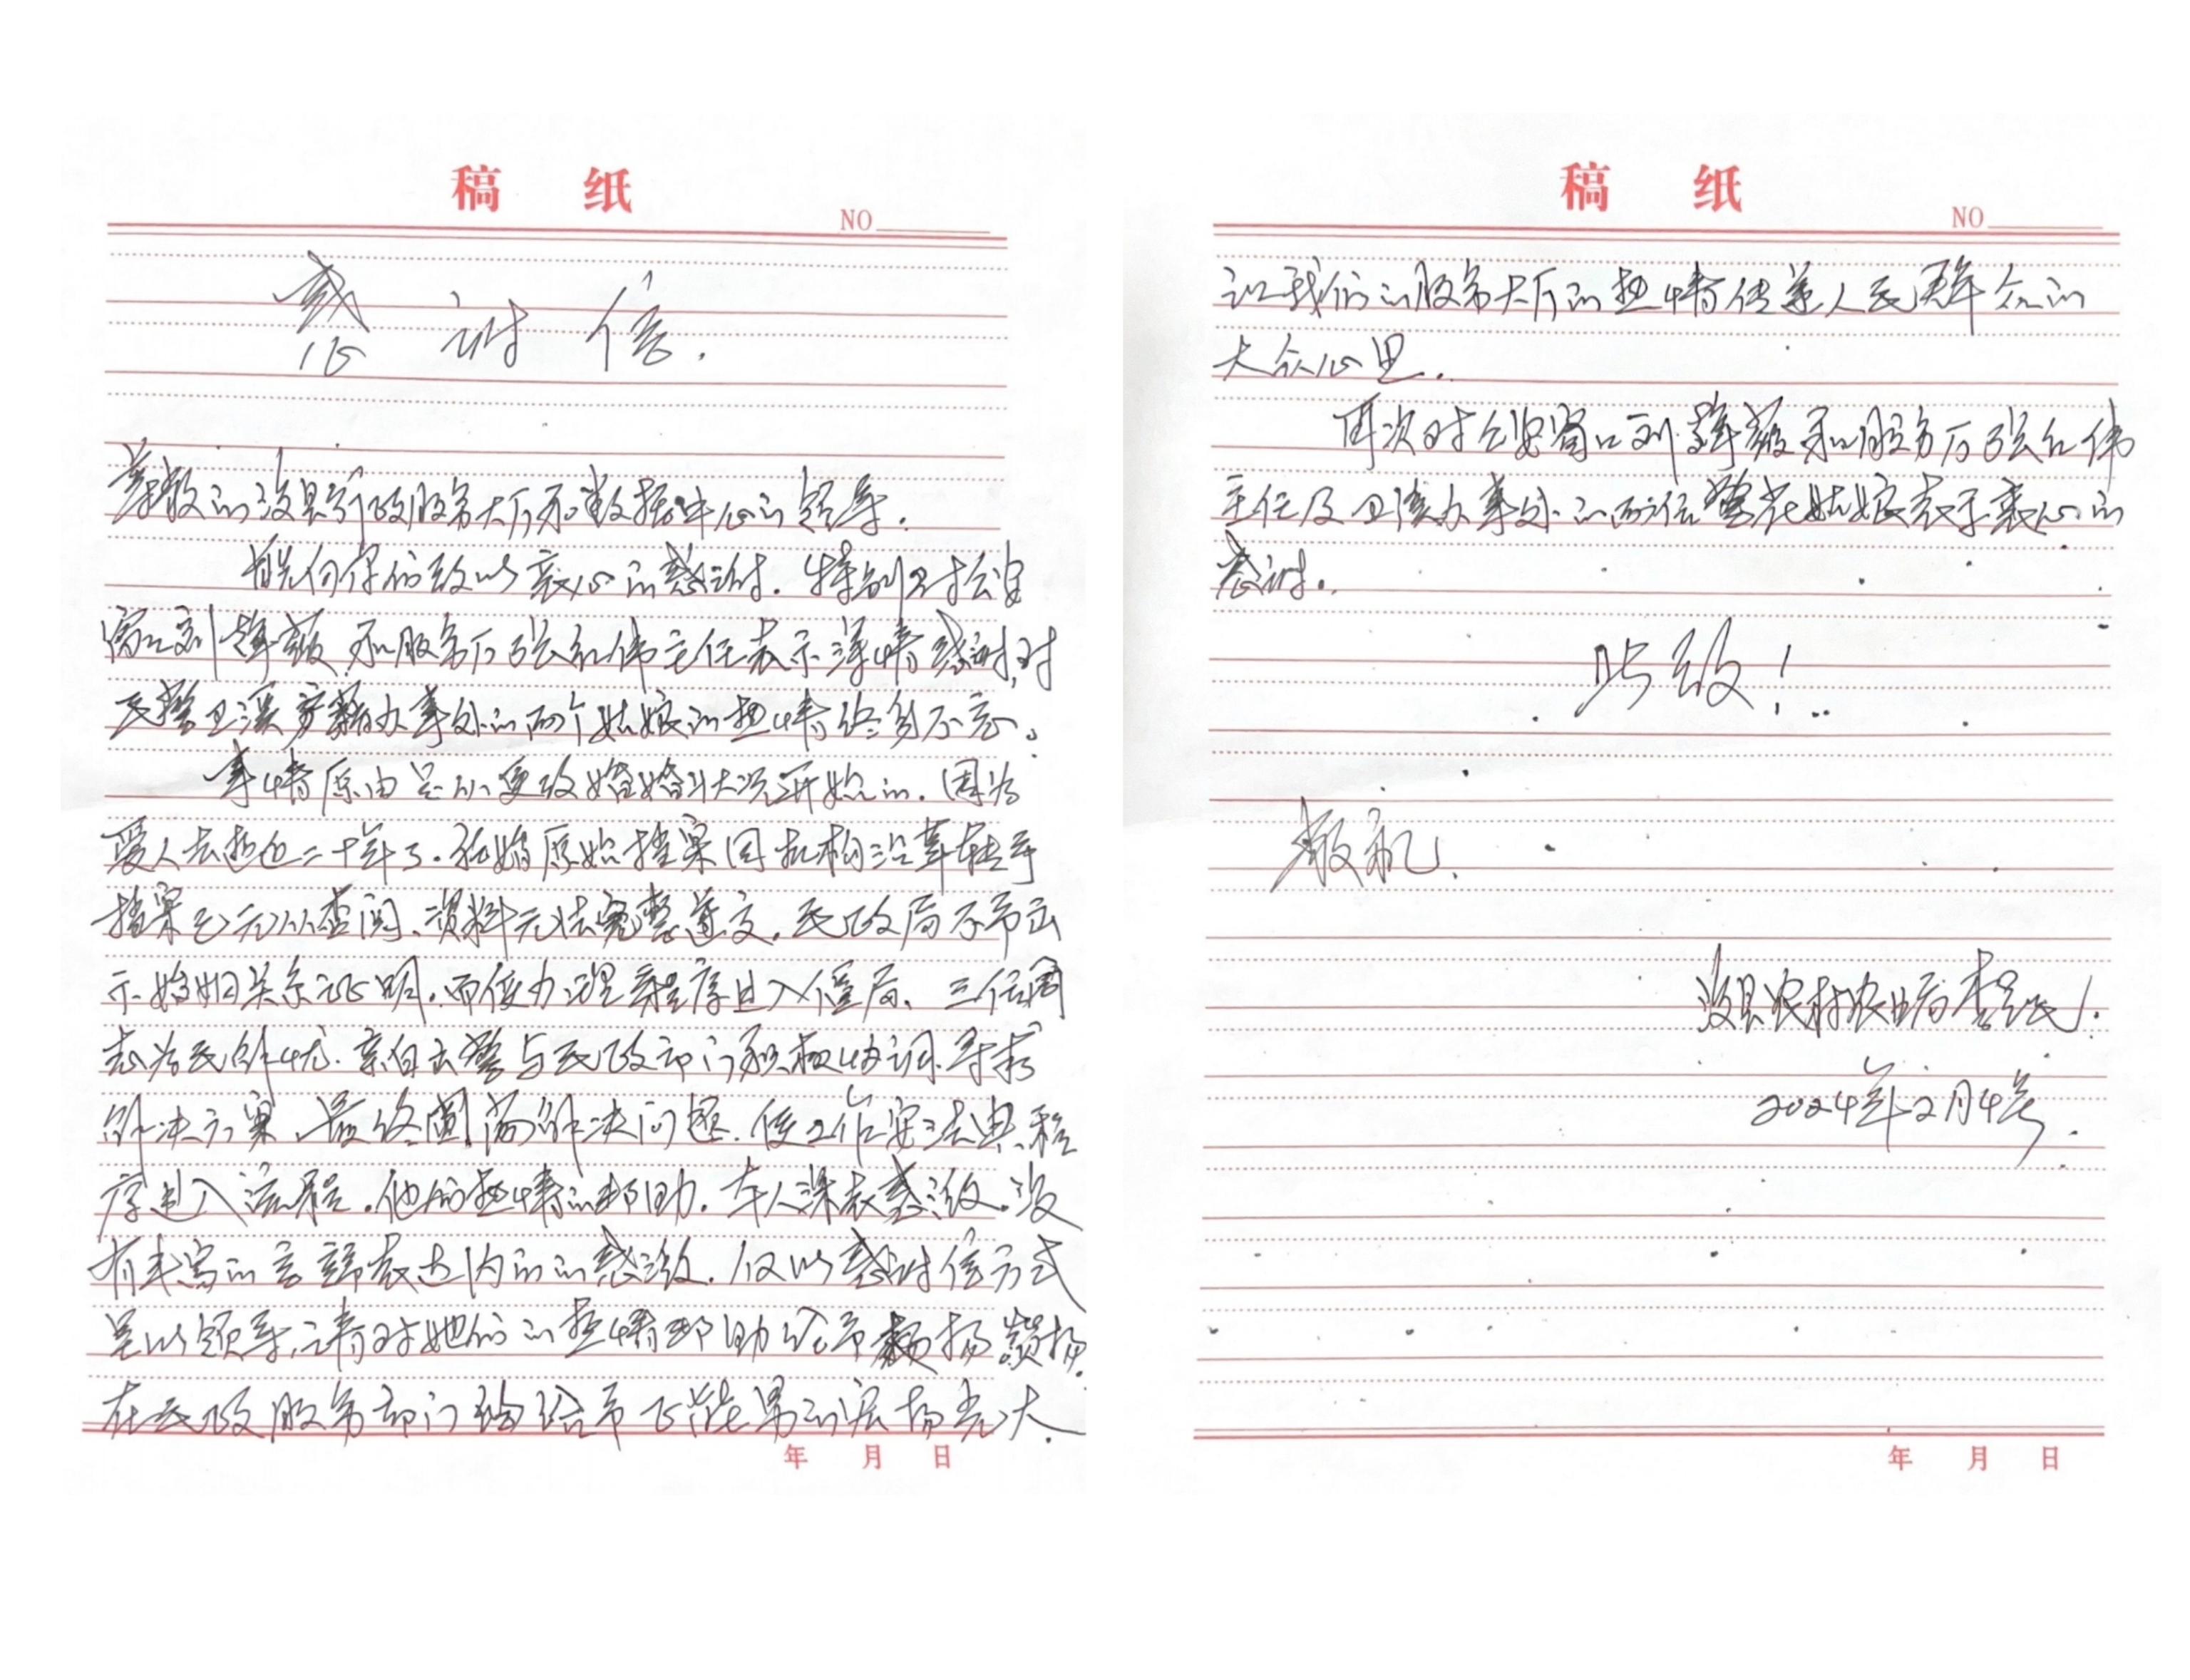 稿 纸
NO
感谢信.
尊敬的浚县行政服务大厅和数据中心的领导.
首先向你们致以衷心的感谢.特别对公安
窗口刘 薇和服务厅张红伟主任表示深情感谢,对
民警卫溪户籍办事处的两个姑娘的热情终身不忘。
事情原由是从更改婚姻状况开始的.因为
爱人去逝近二十年了.结婚原始档案因机构沿革转手
档案已无从查阅、资料无法完整递交.民政局不予出
示婚姻关系证明.而使办理程序进入僵局、三位同
志为民解忧.亲自出警与民政部门积极协调.寻找
解决方案、最终圆满解决问题.使工作安 法典程
序进入流程.他们热情的帮助.本人深表感激.没
有丰富的言 表达内 的感激.仅以感谢信方式
呈以领导,请对她们的热情帮助给予表扬 扬.
在民政服务部门 给予 的宏扬光大.
年 月 日
稿 纸
NO
让我们的服务大厅的热情传递人民群众的
大众心里.
再次对公安窗口刘 薇和服务厅张红伟
主任及卫溪办事处的两位警花姑娘表示衷心的
感谢.
此致!
敬礼.
浚县农村农业局 李 民.
2024年12月4号.
年 月 日